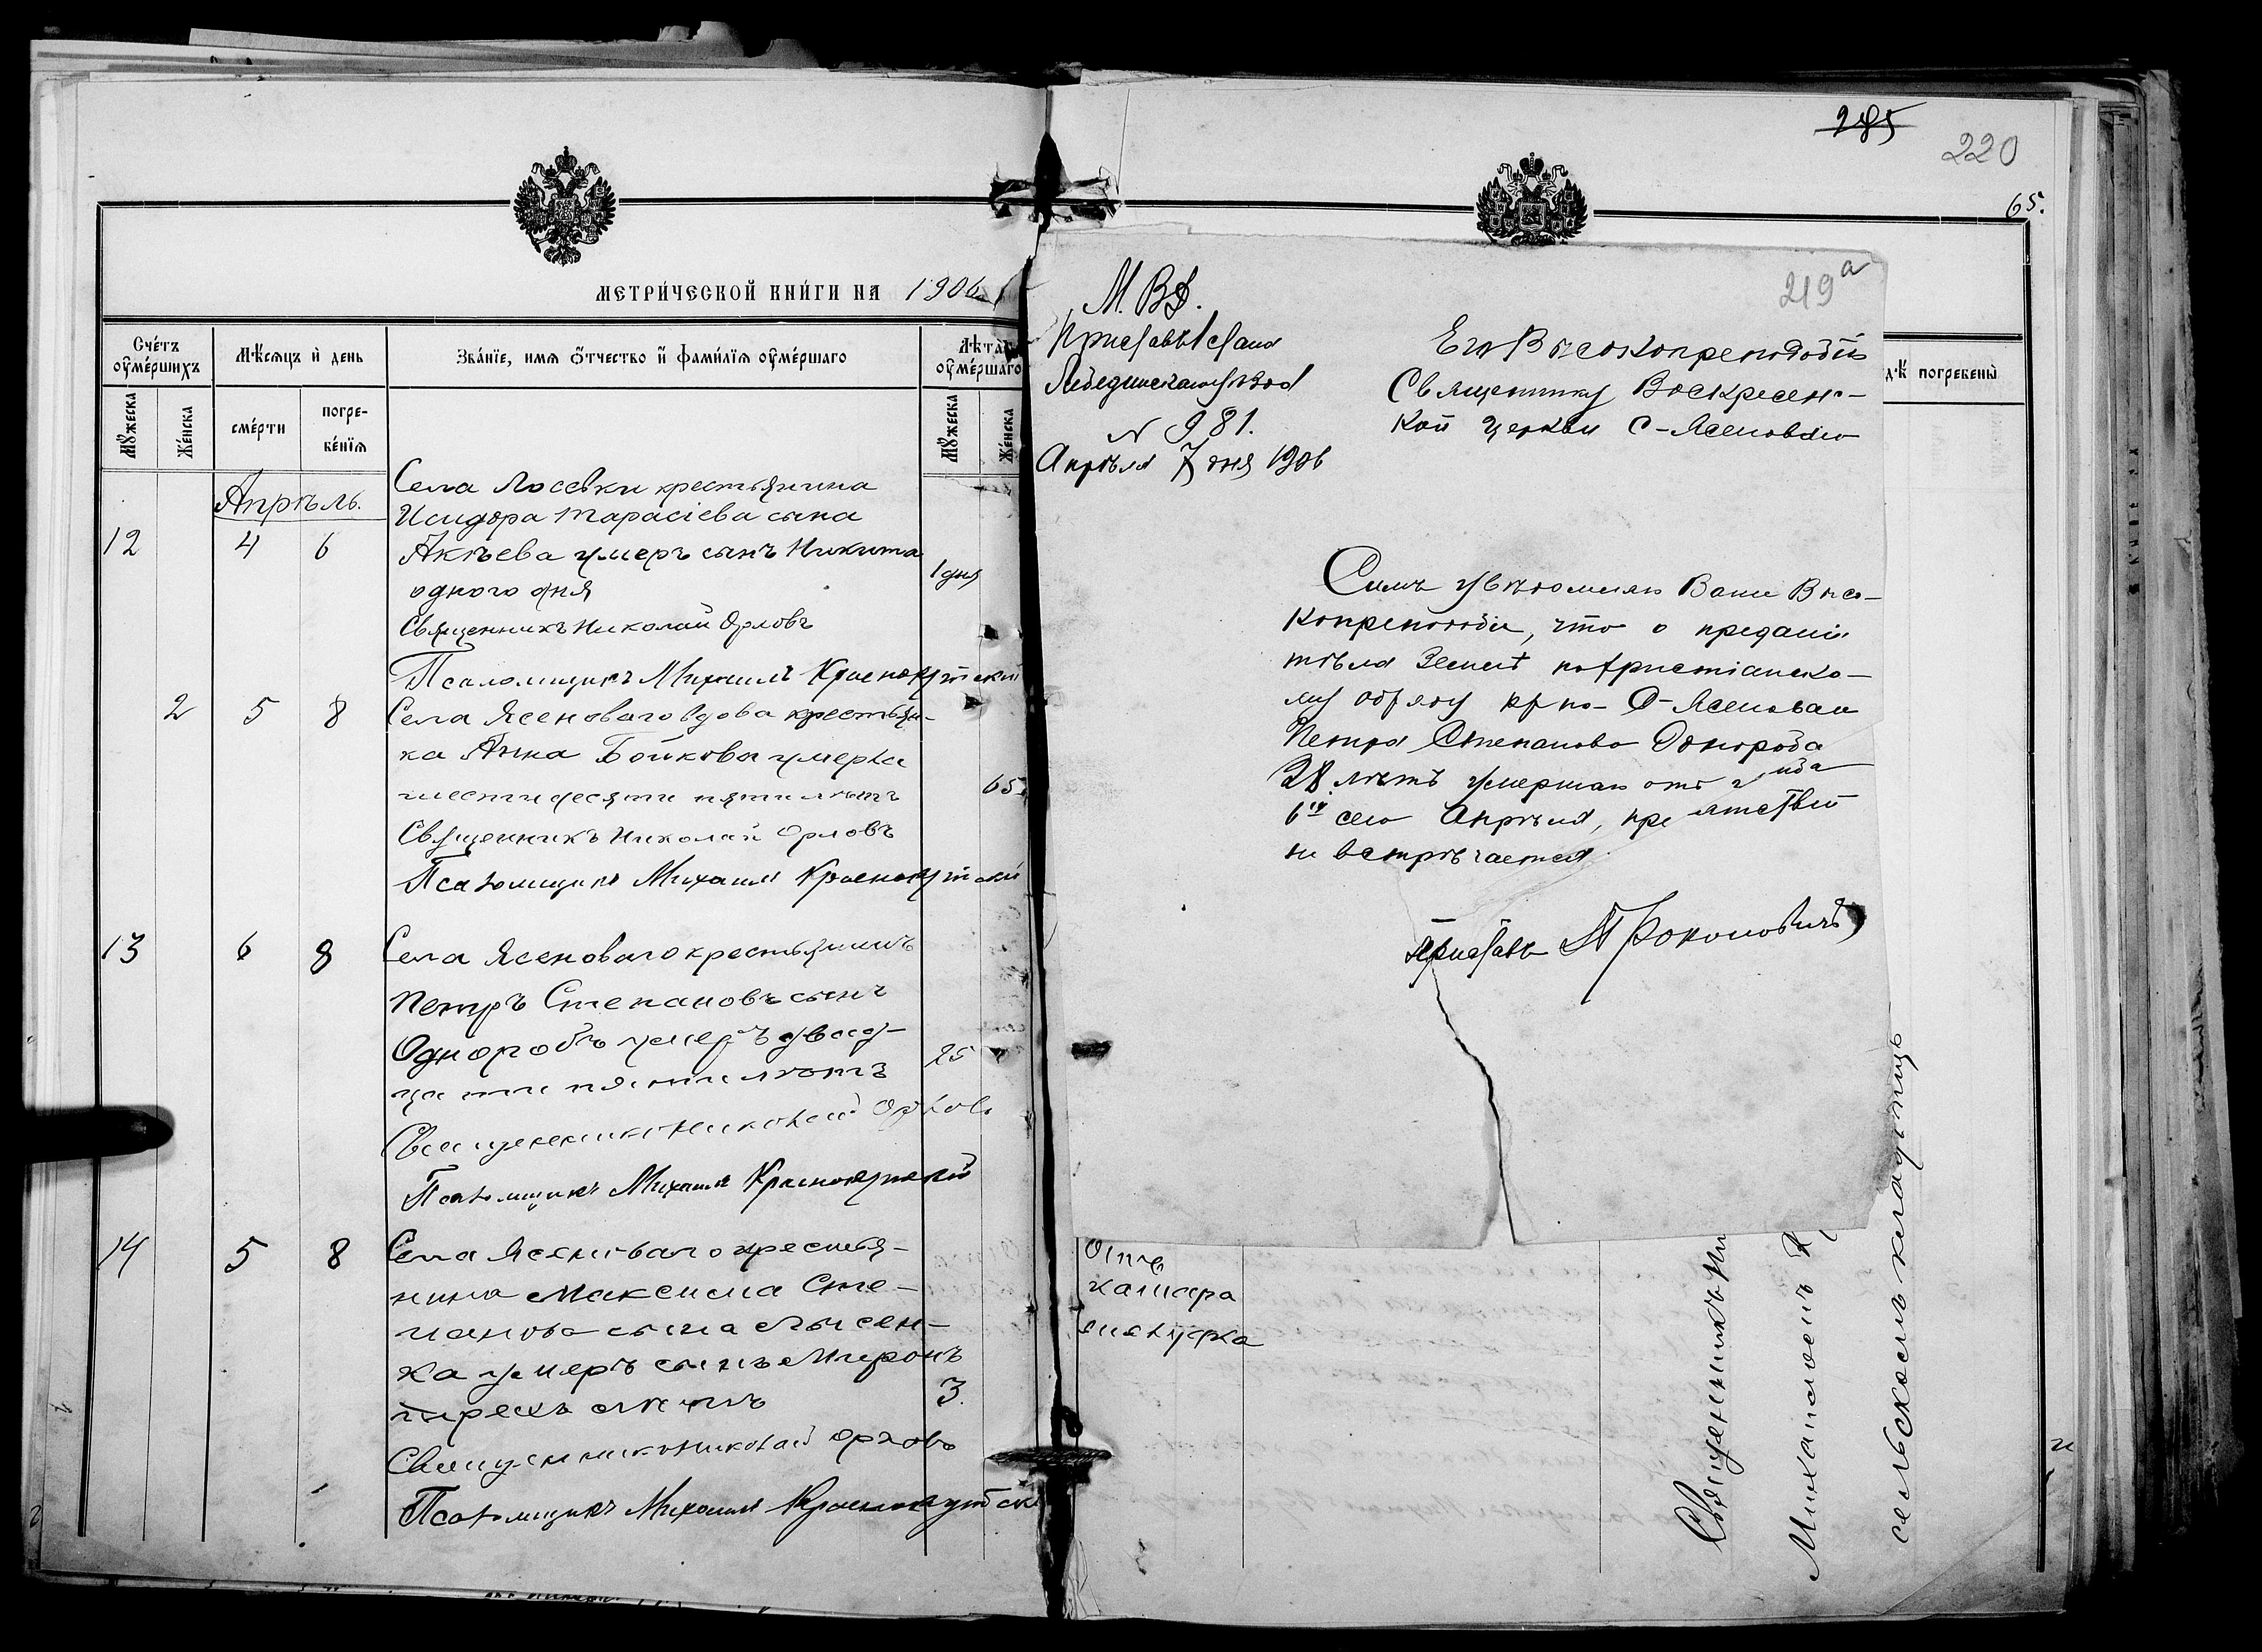 МЕТРИ́ЧЕСКОЙ КНИ́ГИ НА 1906
Сче́тъ оу҆ме́ршихъ
Мѣ́сяцъ и҆ день
Зва́нїе, имя ѻ҆́тчество и҆ фами́лїя оу҆ме́ршаго
Лѣта оу҆ме́ршаго
Мꙋ́жеска
Же́нска
сме́рти
погре-
бе́нїя
Мꙋ́жеска
Же́нска
Апрѣль.
Села Лосевки крестьянина
Исидора Тарасіева сына
12 4 6 Акѣева умеръ сынъ Никита
одного дня 1 дня
Священникъ Николай Орловъ
Псаломщикъ Михаилъ Краснокутскій
2 5 8 Села Ясеноваго вдова крестьян-
ка Анна Бойкова умерла
шестидесяти пяти лѣтъ 65
Священникъ Николай Орловъ
Псаломщикъ Михаилъ Краснокутскій
13 6 8 Села Ясеноваго крестьянинъ
Петръ Степановъ сынъ
Одноробъ умеръ двад-
цати пяти лѣтъ 25
Священникъ Николай Орловъ
Псаломщикъ Михаилъ Краснокутскій
14 5 8 Села Ясеноваго крестья-
нина Максима Сте-
панова сына Лысен-
ка умеръ сынъ Миронъ
трехъ лѣтъ 3.
Священникъ Николай Орловъ
Псаломщикъ Михаилъ Краснокутск
285
220
65.
дѣ погребены̀
219а
М. В. Д.
Приставъ 1 Стана
Лебединскаго уѣзда
N 981.
Апрѣля 7 дня 1906
Его Высокопреподобію
Священнику Воскресенс-
кой церкви С-Ясеноваго
Симъ увѣдомляю Ваше Высо-
копреподобіе, что о преданіи
тѣла землѣ по христіанско-
му обряду кр-на С-Ясеноваго
Петра Степанова Однороба
28 лѣтъ умершаго отъ
6го сего Апрѣля, препятствій
не встрѣчается.
Приставъ Прокоповичъ
Отъ
катара
желудка
Священникъ Ни
Михаиломъ К
сельскомъ кладбищѣ